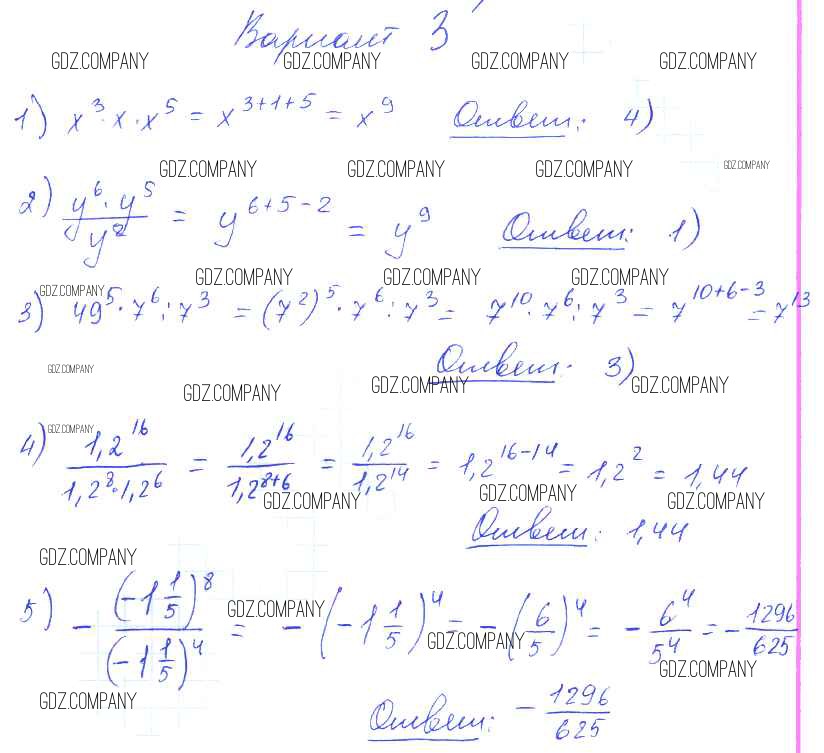 Вариант 3
GDZ.COMPANY GDZ.COMPANY GDZ.COMPANY GDZ.COMPANY
1) x³·x·x⁵ = x³⁺¹⁺⁵ = x⁹ Ответ: 4)
GDZ.COMPANY GDZ.COMPANY GDZ.COMPANY GDZ.COMPANY
2) y⁶·y⁵/y² = y⁶⁺⁵⁻² = y⁹ Ответ: 1)
GDZ.COMPANY GDZ.COMPANY GDZ.COMPANY GDZ.COMPANY
3) 49⁵·7⁶:7³ = (7²)⁵·7⁶:7³ = 7¹⁰·7⁶:7³ = 7¹⁰⁺⁶⁻³ = 7¹³
Ответ: 3)
GDZ.COMPANY GDZ.COMPANY GDZ.COMPANY GDZ.COMPANY
GDZ.COMPANY
4) 1,2¹⁶/(1,2⁸·1,2⁶) = 1,2¹⁶/1,2⁸⁺⁶ = 1,2¹⁶/1,2¹⁴ = 1,2¹⁶⁻¹⁴ = 1,2² = 1,44
GDZ.COMPANY GDZ.COMPANY GDZ.COMPANY
Ответ: 1,44
GDZ.COMPANY
5) -(-1 1/5)⁸/(-1 1/5)⁴ = -(-1 1/5)⁴ = -(6/5)⁴ = -6⁴/5⁴ = -1296/625
GDZ.COMPANY GDZ.COMPANY GDZ.COMPANY
GDZ.COMPANY
Ответ: -1296/625